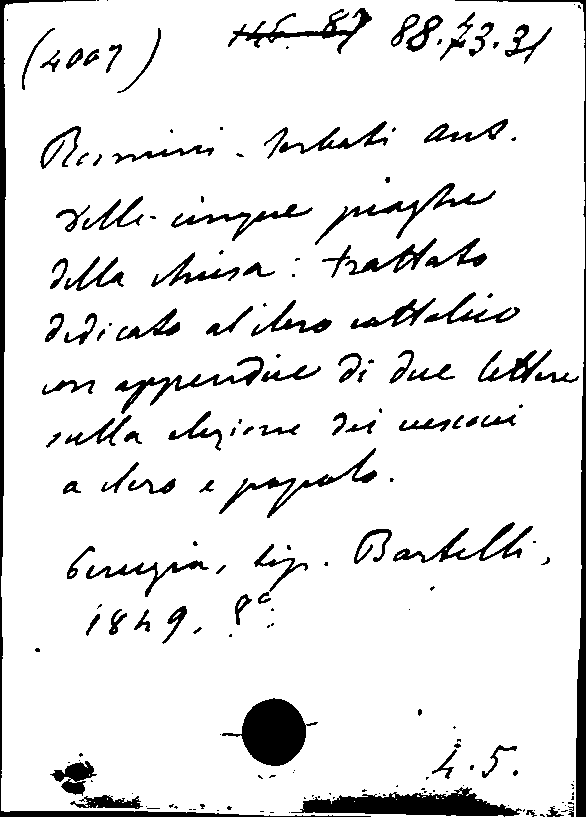 (4007) 146. 87 88.43.31
Rosmini-Serbati Ant.
Delle cinque piaghe
della chiesa: trattato
dedicato al clero cattolico
con appendice di due lettere
sulla elezione dei vescovi
a clero e popolo.
Perugia, tip. Bartelli,
1849. 8º.
4.5.